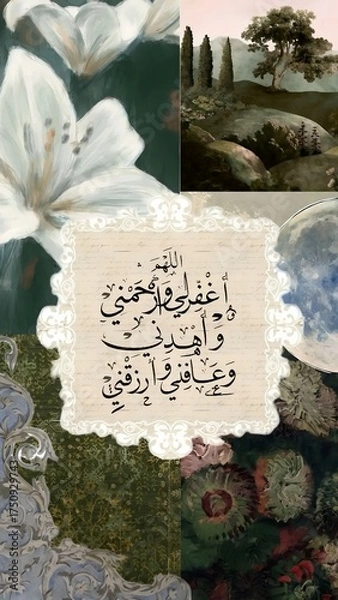 اللَّهُمَّ
أغْفِرْلِي وَأرْحَمْنِي
وَأهْدِنِي
وَعَافِنِي وَأرْزُقْنِي
Adobe Stock | #1750929743